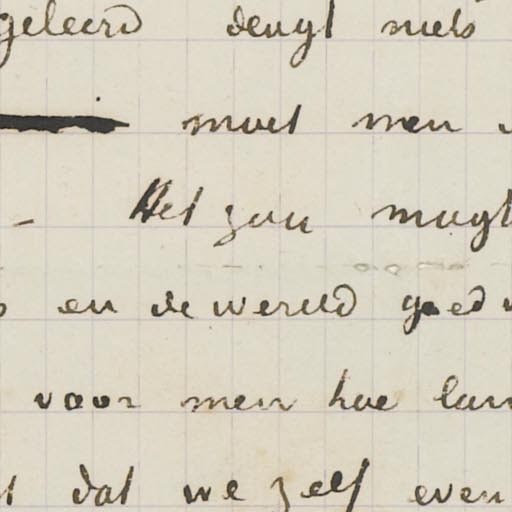 geleerd deugt niets
moet men
- Het zou mogt
en de wereld goed
voor men hoe lan
dat we zelf even